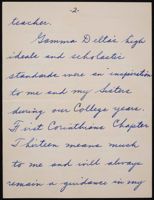 -2-
teacher.
Gamma Delta's high
ideals and scholastic
standards were an inspiration
to me and my sisters
during our College years.
First Corinthians Chapter
Thirteen means much
to me and will always
remain a guidance in my